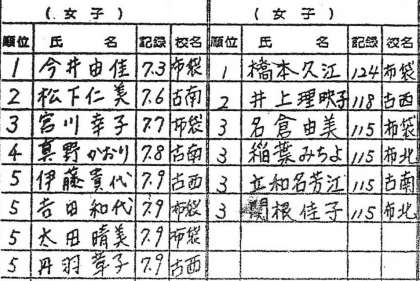 (女子) (女子)
順位 氏名 記録 校名 順位 氏名 記録 校名
1 今井由佳 7.3 布袋 1 橋本久江 124 布袋
2 松下仁美 7.6 古南 2 井上理映子 118 古西
3 宮川幸子 7.7 布袋 3 名倉由美 115 布袋
4 真野かおり 7.8 古南 3 稲葉みちよ 115 布北
5 伊藤貴代 7.9 古西 3 立和名芳江 115 古南
5 吉田和代 7.9 布袋 3 関根佳子 115 布北
5 太田晴美 7.9 布袋
5 丹羽章子 7.9 古西